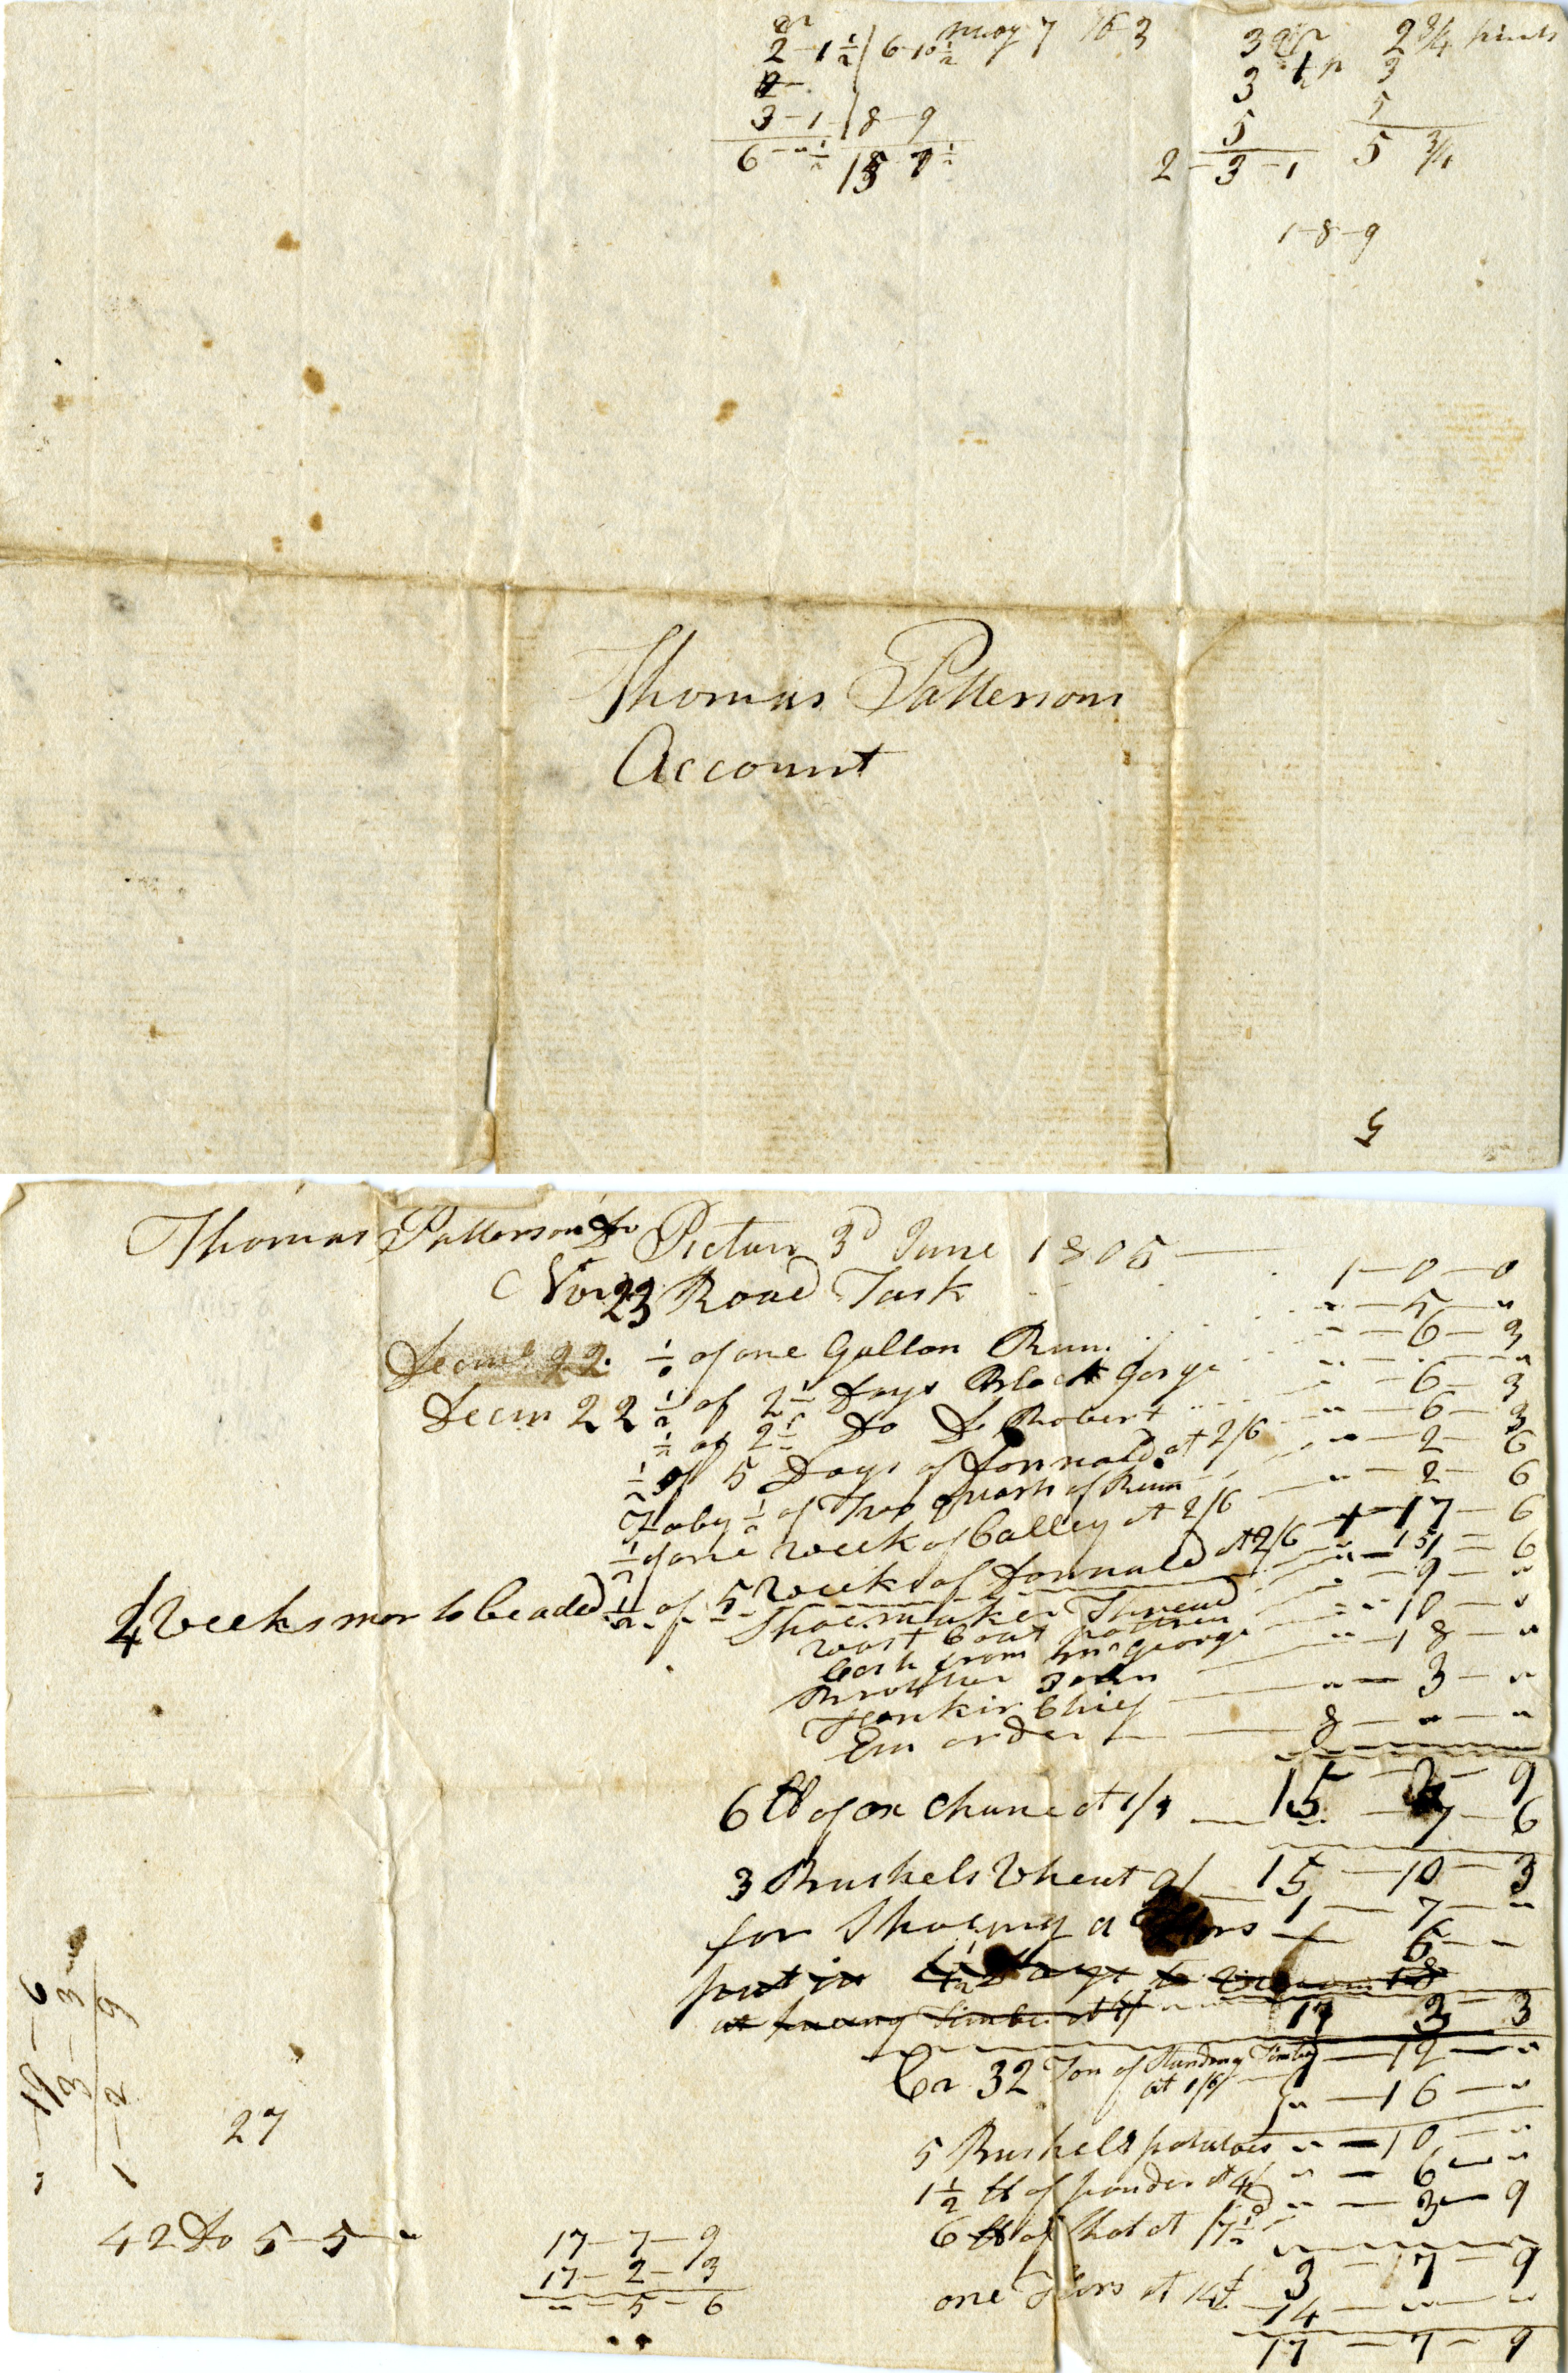 qr
2 - 1 1/2 / 6 - 10 1/2 may 7 16 3
3 - 1 / 8 - 9
6 - " 1/2 15 7 1/2
3 qr 2 3/4 pints
3 3
5 5
2 - 3 - 1 5 3/4
1 - 8 - 9
Thomas Pattersons
Account
5
Thomas Patterson Dr Pictou 3d June 1805
Nor 23 Road Task 1 - 0 - 0
Decmr 22 1/2 of one Gallon Rum " - 5 - "
Decm 22 1/2 of 2 1/2 Days Black Gorge " - 6 - 3
1/2 of 2 1/2 Do Do Robert " - 6 - 3
1/2 of 5 Days of Donnald at 2/6 " - 6 - 3
Toby 1/2 of Two quarts of Rum " - 2 - 6
1/2 of one week of Calley at 2/6 " - 2 - 6
4 Weeks mor to be aded 1/2 of 5 Weeks of Donnald at 2/6 1 - 17 - 6
Shoemaker Thread
wast Coat pattren " - 9 - "
Cash from mr george " - 10 - "
Brother John " - 18 - "
Chief " - 3 - "
order 8 - " - "
15 - 2 - 9
6 lb of ox Chane at 1/3 " - 7 - 6
15 - 10 - 3
3 Bushels Wheat 9/ 1 - 7 - "
for Shoeing a Hors 6 - -
put in 4 1/2 Days to
at timber at 4/
17 2 - 3
Cr 32 Ton of Standing Timber
at 1/6 - 12 - "
" - 16 - "
5 Bushels potatoes " - 10 - "
1 1/2 lb of pouder at 4/ " - 6 - "
6 lb of Shot at /7 1/2 " - 3 - 9
3 - 17 - 9
one Hors at 14£ 14 - " - "
17 - 7 - 9
27
42 Do 5 - 5 - "
17 - 7 - 9
17 - 2 - 3
" - 5 - 6